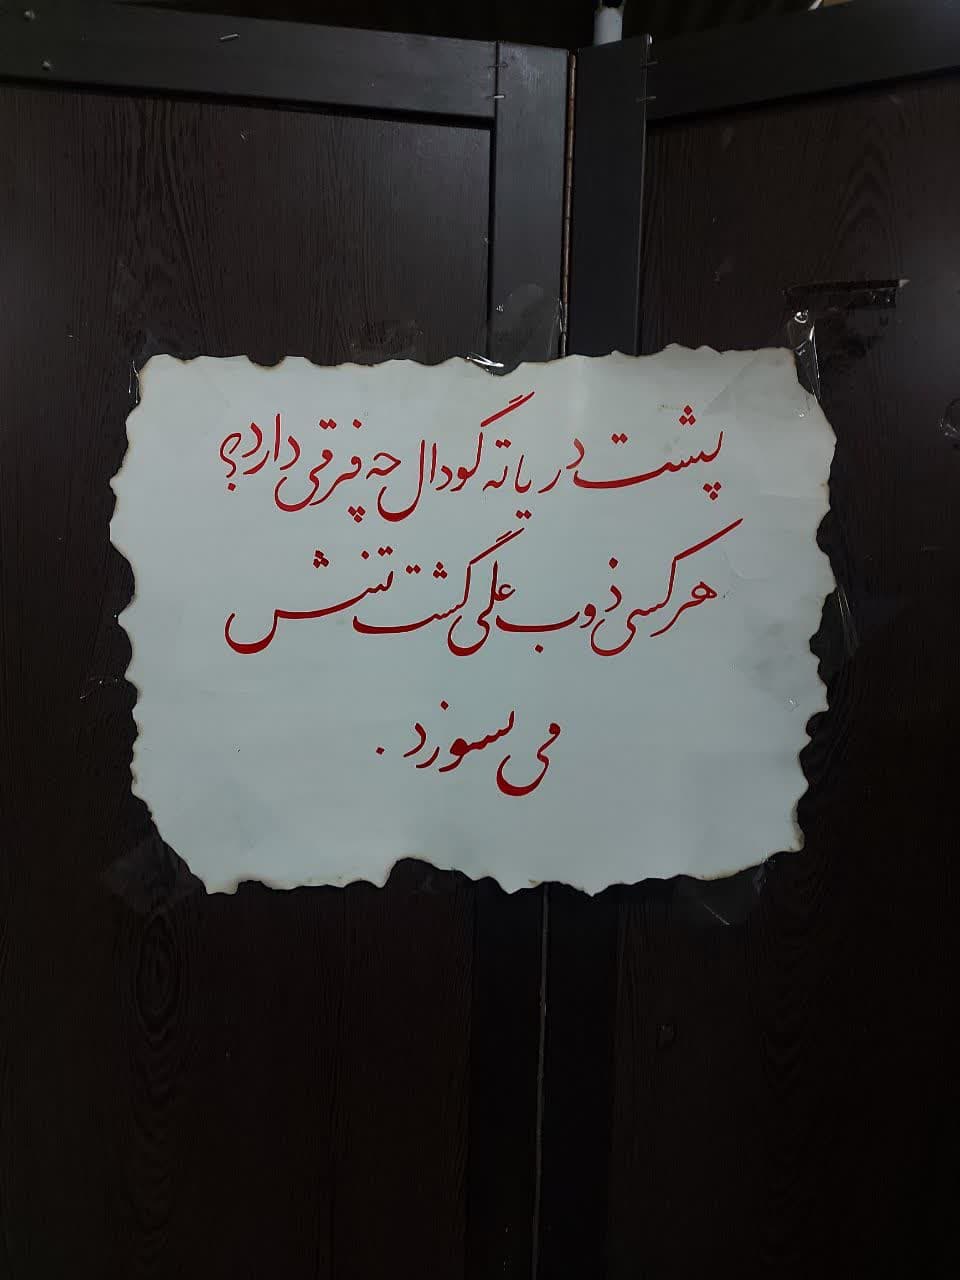 پشت در یا ته گودال چه فرقی دارد؟
هر کسی ذوب علی گشت تنش
می سوزد .